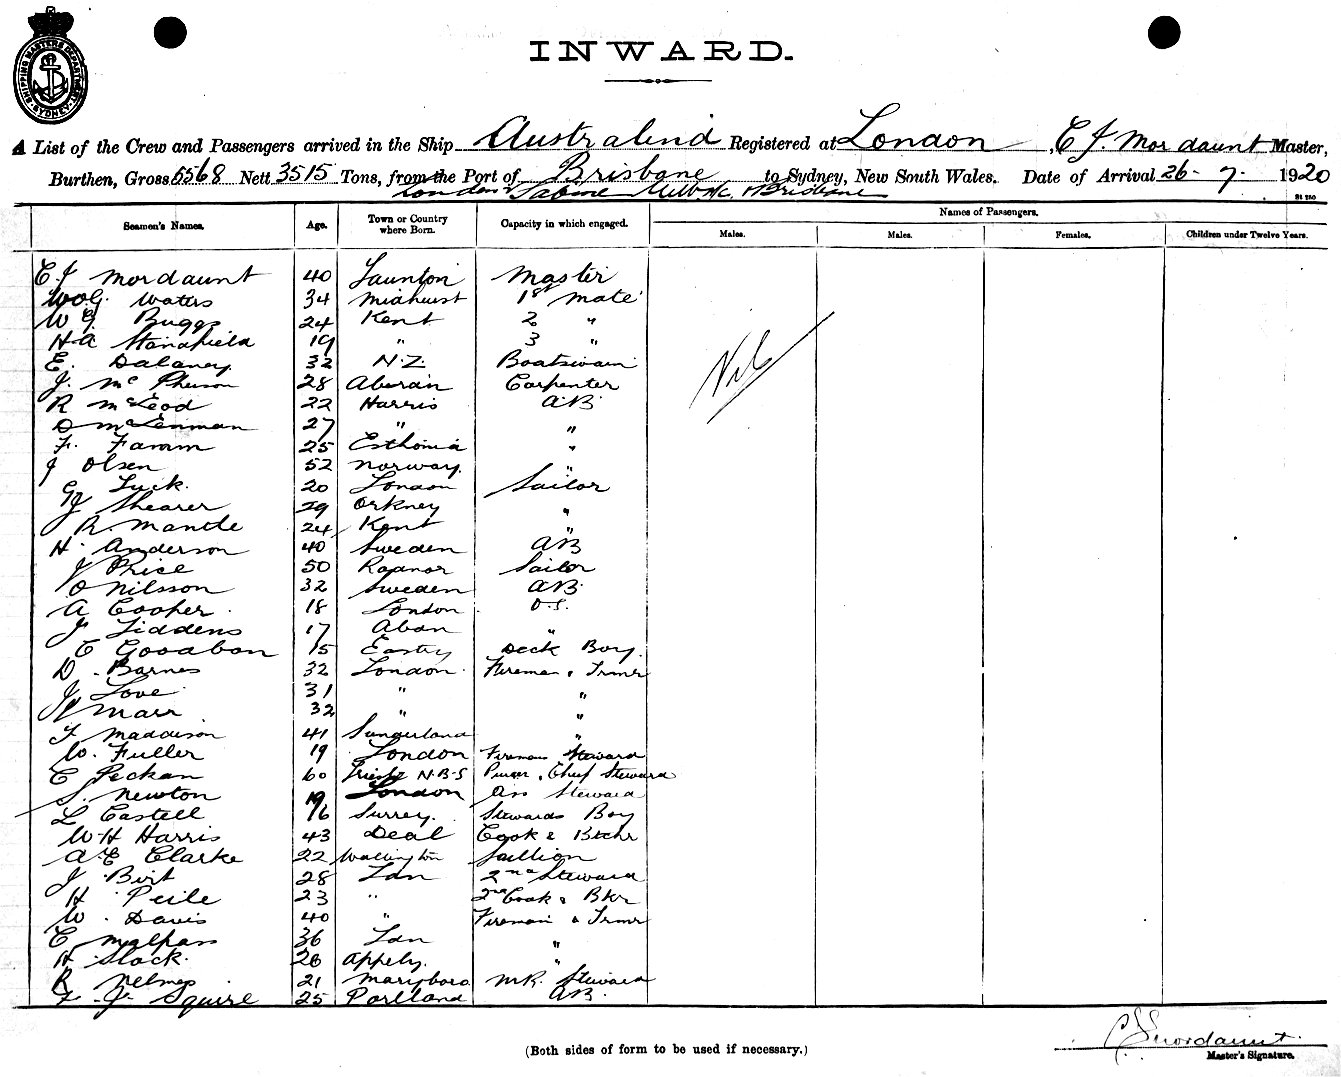 SHIPPING MASTERS DEPARTMENT SYDNEY
INWARD.
A List of the Crew and Passengers arrived in the Ship Australind Registered at London, C J. Mordaunt Master,
Burthen, Gross 5568 Nett 3515 Tons, from the Port of Brisbane to Sydney, New South Wales. Date of Arrival 26-7-1920
London Brisbane
Seamen's Names. Age. Town or Country where Born. Capacity in which engaged. Names of Passengers.
Males. Males. Females. Children under Twelve Years.
C J Mordaunt 40 Taunton Master
W Waters 34 Midhurst 1st Mate
W G Buggs 24 Kent 2 "
H A Stansfield 19 " 3 "
Nil
E. Dalaney 32 N.Z. Boatswain
J. Mc Pherson 28 Carpenter
R McLeod 22 Harris A.B.
D McLenman 27 " "
F. Famm 25 Esthonia "
J Olsen 52 Norway. "
G Tuck. 20 London Sailor
J Shearer 29 Orkney "
R. Mantle 24 Kent "
H. Anderson 40 Sweden AB
J Price 50 Sailor
O Nilsson 32 Sweden AB.
A Cooper. 18 London O.S.
J Tiddens 17 "
C Goodban 15 Eastry Deck Boy.
D. Barnes 32 London. Fireman & Trmr
J Love 31 " "
W Marr 32 " "
T Maddison 41 Sunderland "
W. Fuller 19 London Firemans Steward
C Peckan 60 N.B.S Purser, Chief Steward
S. Newton 19 London Ass Steward
L Castell 16 Surrey. Stewards Boy
W H Harris 43 Deal Cook & Btchr
A E Clarke 22 Wallington
J Birt 28 Ldn 2nd Steward
H Peile 23 " 2nd Cook & Bkr
W. Davis 40 " Fireman & Trmr
C Malpass 36 Ldn "
H Slack. 26 "
R Nelmes 21 Marylboro MR. Steward
F. J. Squire 25 Portland AB.
C J Mordaunt.
(Both sides of form to be used if necessary.)
Master's Signature.